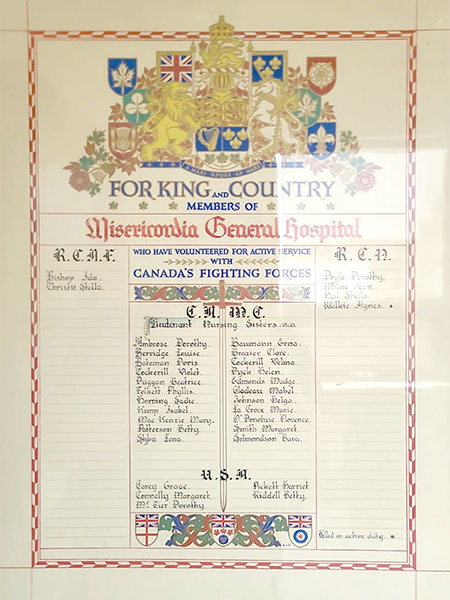 A MARI USQUE AD MARE
FOR KING AND COUNTRY
MEMBERS OF
Misericordia General Hospital
R.C.A.F.
Bishop Ida
Christie Stella
WHO HAVE VOLUNTEERED FOR ACTIVE SERVICE
WITH
CANADA'S FIGHTING FORCES
R.C.N.
Doyle Dorothy
Milne Jean
Neil Sheila
Wilkie Agnes *
C.A.M.C.
Lieutenant Nursing Sisters
Ambrose Dorothy
Berridge Louise
Bateman Doris
Cockerill Violet
Duggan Beatrice
Folkett Phyllis
Horning Sadie
Kemp Isabel
Mac Kenzie Mary
Patterson Betty
Shiba Lena
Baumann Erna
Brazer Clare
Cockerill Velma
Dyck Helen
Edmonds Madge
Gladeau Mabel
Johnson Helga
La Croix Marie
O'Donahue Florence
Smith Margaret
Edmondson Dora
U.S.A.
Carey Grace
Connelly Margaret
Mc Tier Dorothy
Pickett Harriet
Riddell Betty
Killed on active duty *